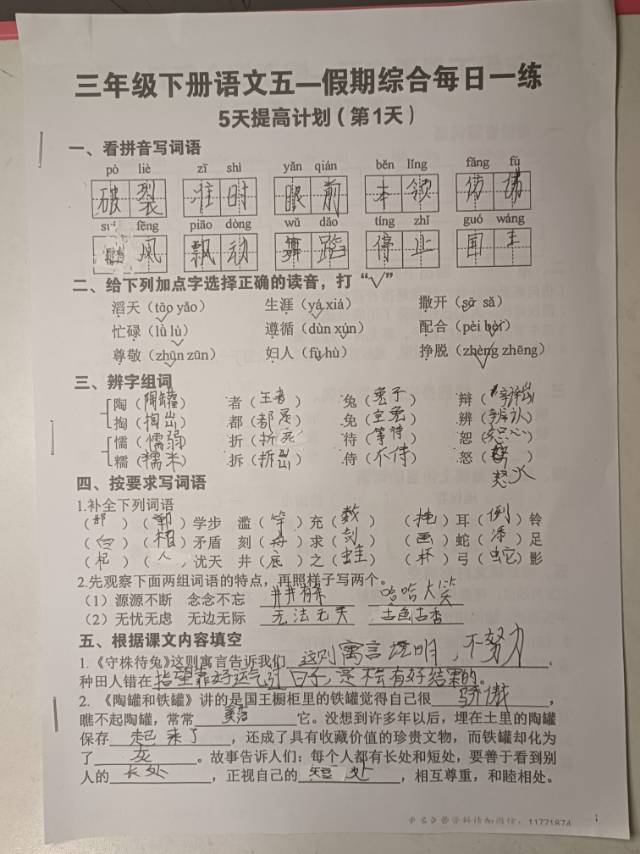 三年级下册语文五一假期综合每日一练
5天提高计划（第1天）
一、看拼音写词语
pò liè zī shì yǎn qián běn lǐng fǎng fú
破裂 准时 眼前 本领
fēng piāo dòng wǔ dǎo tíng zhǐ guó wáng
风 飘动 舞蹈 停止 国王
二、给下列加点字选择正确的读音，打“√”
滔天（tāo yāo） 生涯（yá xiá） 撒开（sā sǎ）
忙碌（lǜ lù） 遵循（dùn xún） 配合（pèi bèi）
尊敬（zhūn zūn） 妇人（fù hù） 挣脱（zhèng zhēng）
三、辨字组词
陶（陶罐） 者（王者） 兔（兔子） 辩（）
掏（掏出） 都（都是） 免（） 辨（辨认）
懦（懦弱） 折（） 待（等待） 恕（）
糯（糯米） 拆（） 侍（不侍） 怒（）
怒火
四、按要求写词语
1.补全下列词语
（邯）（郸）学步 滥（竽）充（数） （掩）耳（例）铃
（自）（相）矛盾 刻（舟）求（剑） （画）蛇（添）足
（杞）（人）忧天 井（底）之（蛙） （杯）弓（蛇）影
2.先观察下面两组词语的特点，再照样子写两个。
（1）源源不断 念念不忘 井井有条 哈哈大笑
（2）无忧无虑 无边无际 无法无天 古色古香
五、根据课文内容填空
1.《守株待兔》这则寓言告诉我们 这则寓言说明，不努力，
种田人错在 指望靠好运气 是不会有好结果的。
2. 《陶罐和铁罐》讲的是国王橱柜里的铁罐觉得自己很 骄傲，
瞧不起陶罐，常常 它。没想到许多年以后，埋在土里的陶罐
保存 起来了，还成了具有收藏价值的珍贵文物，而铁罐却化为
了 灰。故事告诉人们：每个人都有长处和短处，要善于看到别
人的 长处，正视自己的 短处，相互尊重，和睦相处。